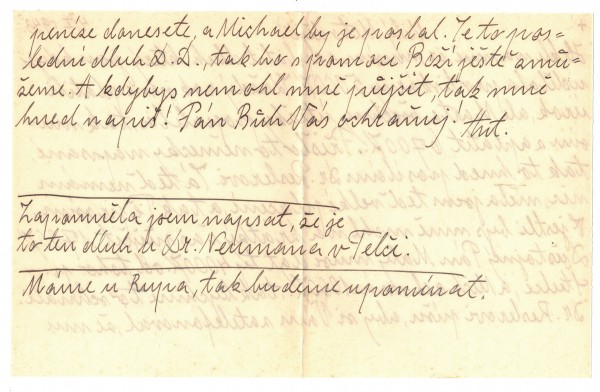 peníze donesete, a Michael by je poslal. Je to pos=
lední dluh D.D., tak ho s pomocí Boží ještě zmů=
žeme. A kdybys nemohl mně půjčit, tak mně
hned napiš! Pán Bůh Vás ochraňuj!
Zapomněla jsem napsat, že je
to ten dluh u Dr. Neumana v Telči.
Máme u Rupa, tak budeme upomínat.